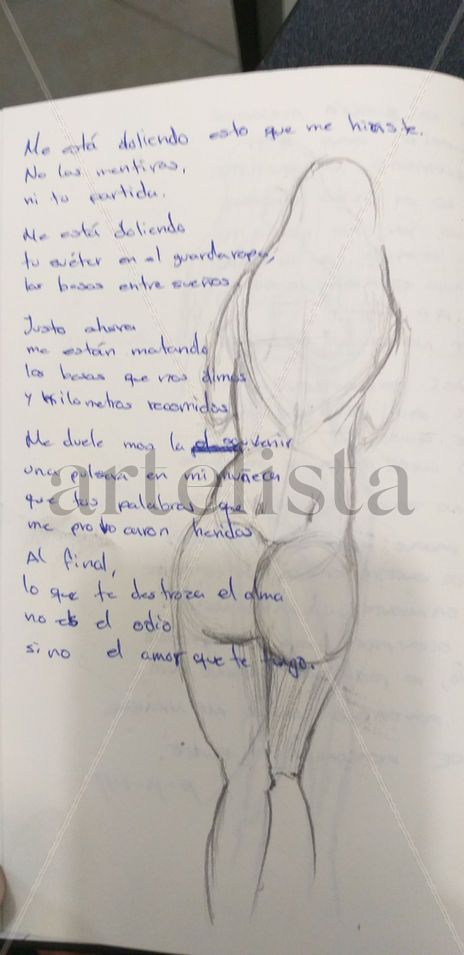 Me está doliendo esto que me hiciste.
No las mentiras,
ni tu partida.
Me está doliendo
tu suéter en el guardaropa,
los besos entre sueños.
Justo ahora
me están matando
los besos que nos dimos
y kilometros recorridos
Me duele mas la souvenir
una pulsera en mi muñeca
que tus palabras que
me provocaron heridas
Al final,
lo que te destroza el alma
no es el odio
sino el amor que te tengo.
artelista